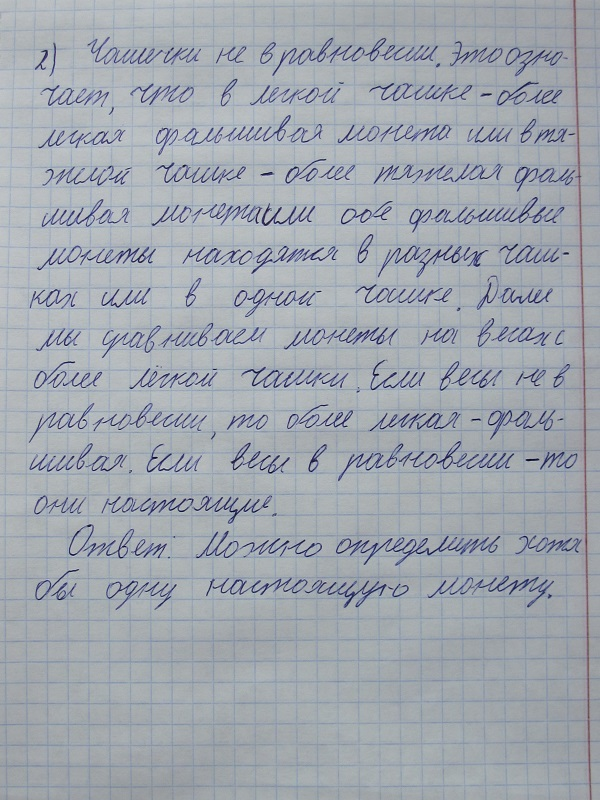 2) Чашечки не в равновесии. Это озна-
чает, что в легкой чашке - более
легкая фальшивая монета или в тя-
желой чашке - более тяжелая фаль-
шивая монета или обе фальшивые
монеты находятся в разных чаш-
ках или в одной чашке. Далее
мы сравниваем монеты на весах с
более лёгкой чашки. Если весы не в
равновесии, то более легкая - фаль-
шивая. Если весы в равновесии - то
они настоящие.
Ответ: Можно определить хотя
бы одну настоящую монету.